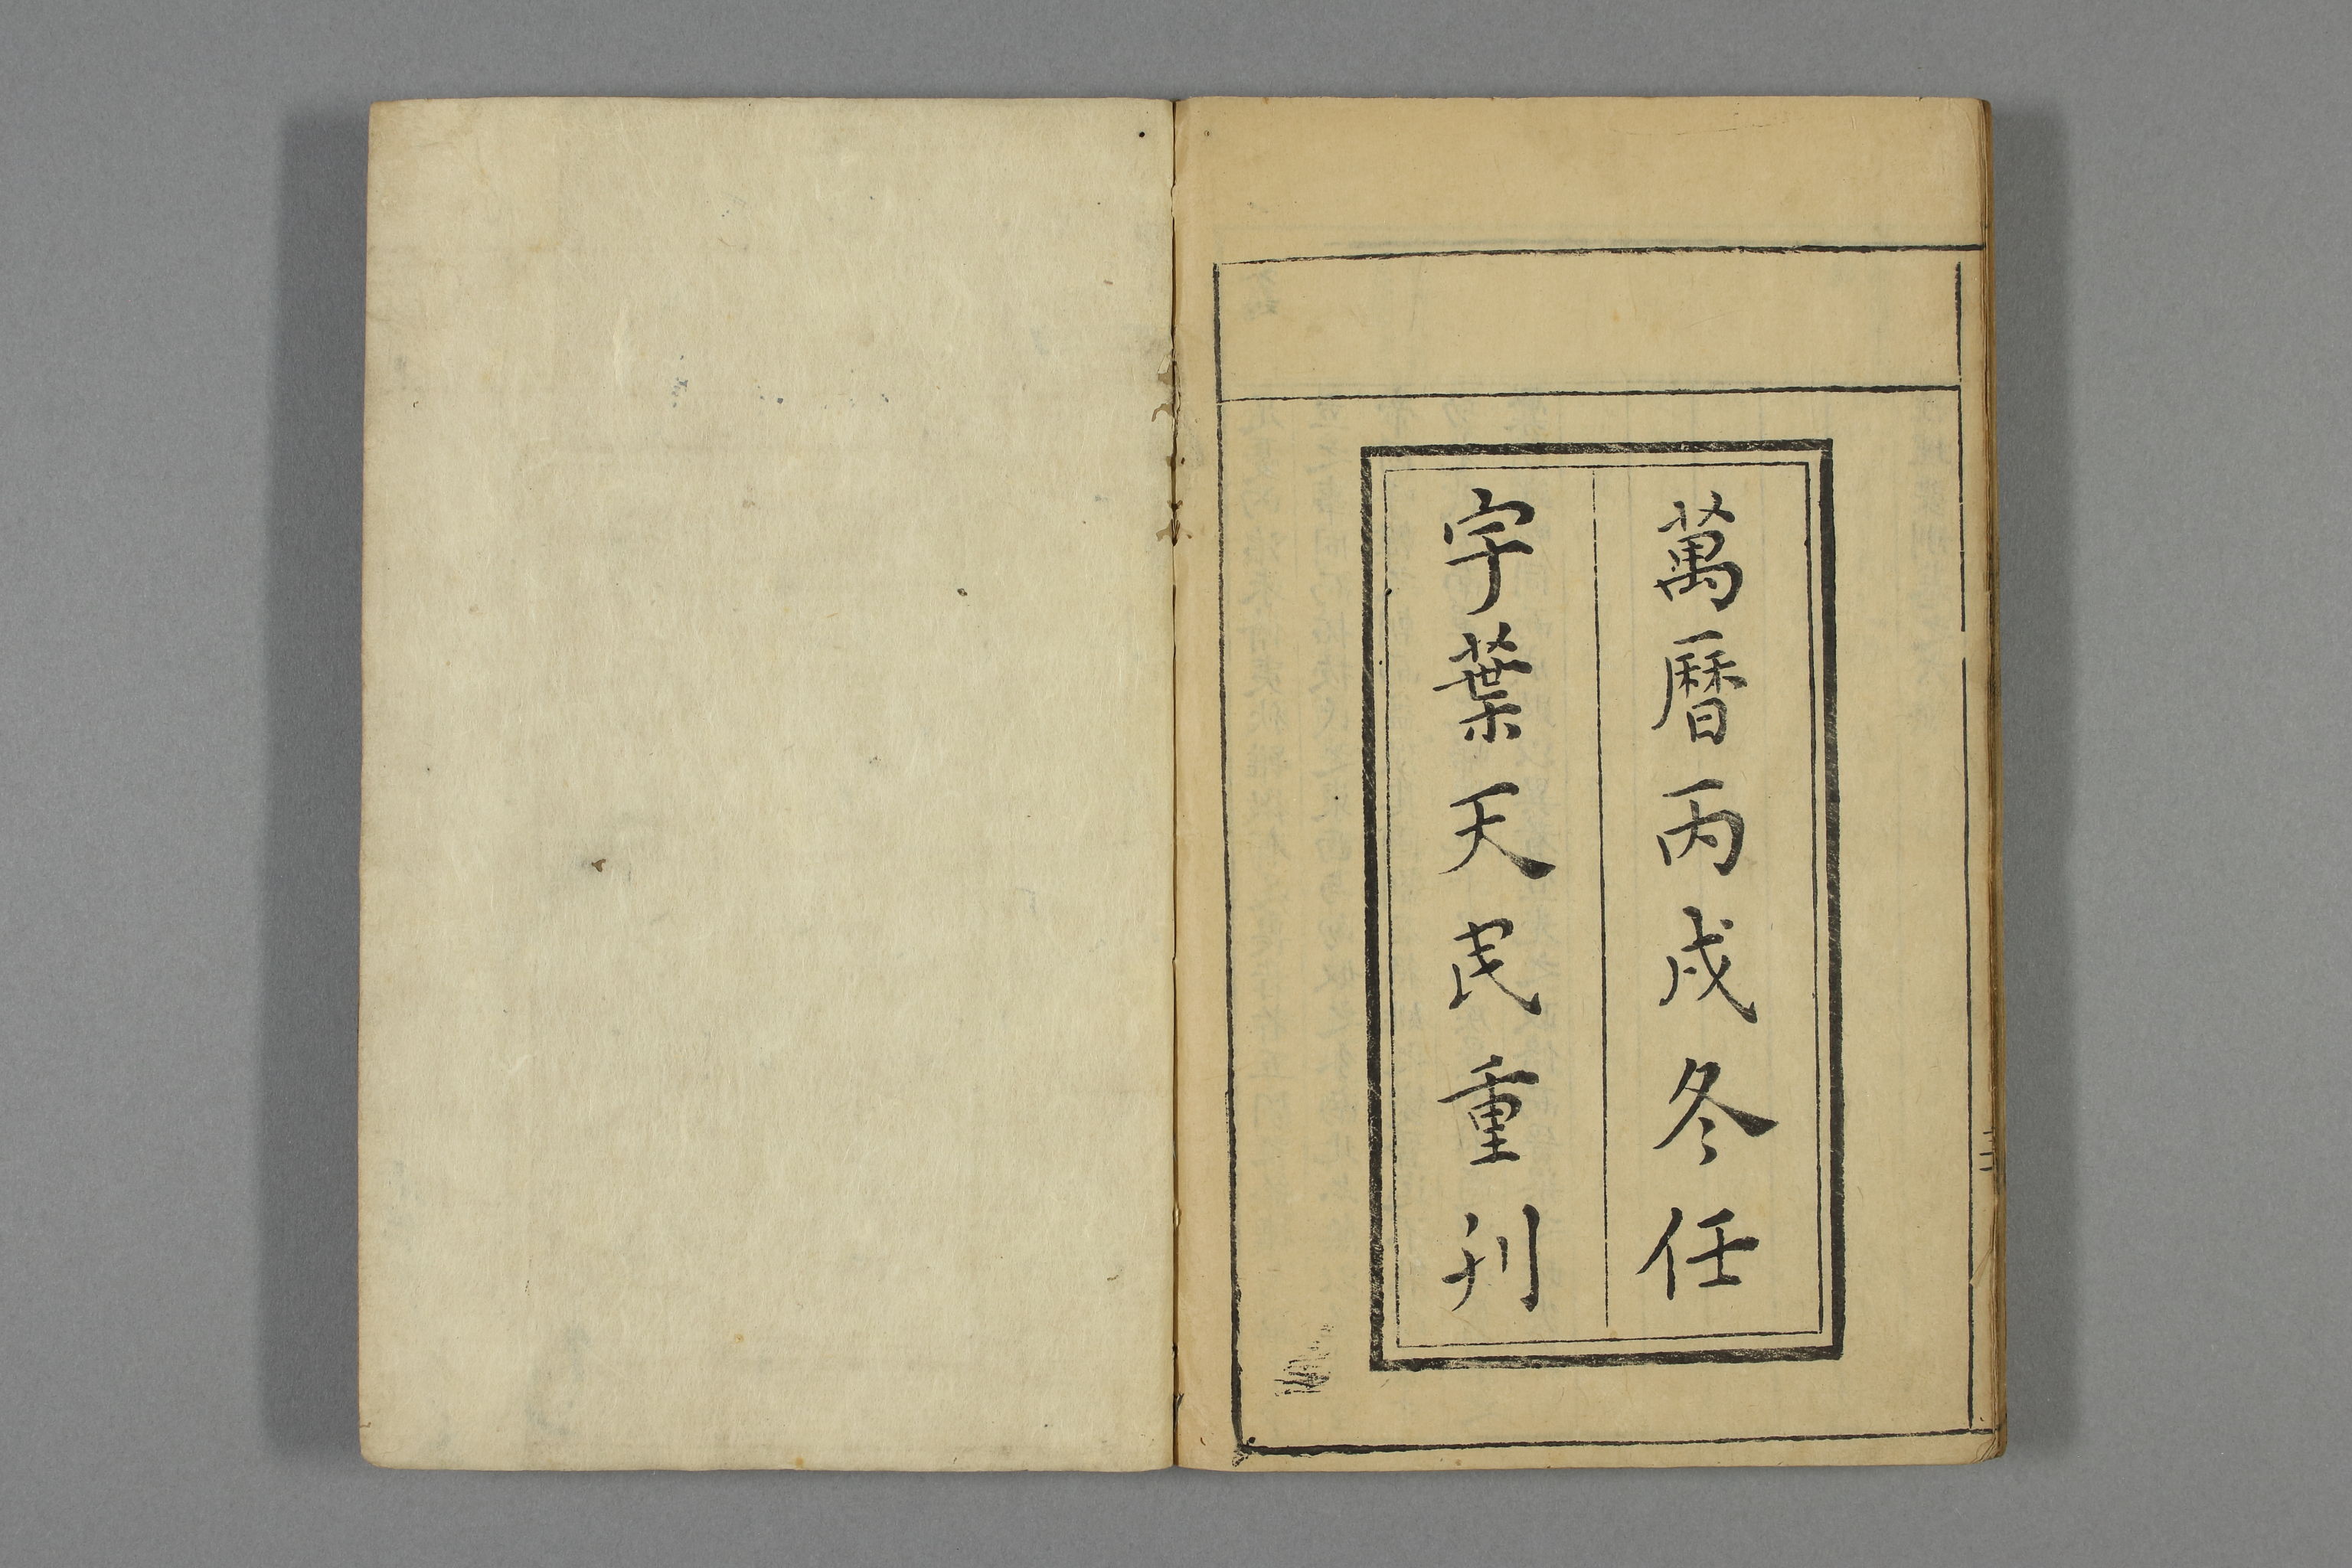 萬曆丙戌冬任
宇葉天民重刊